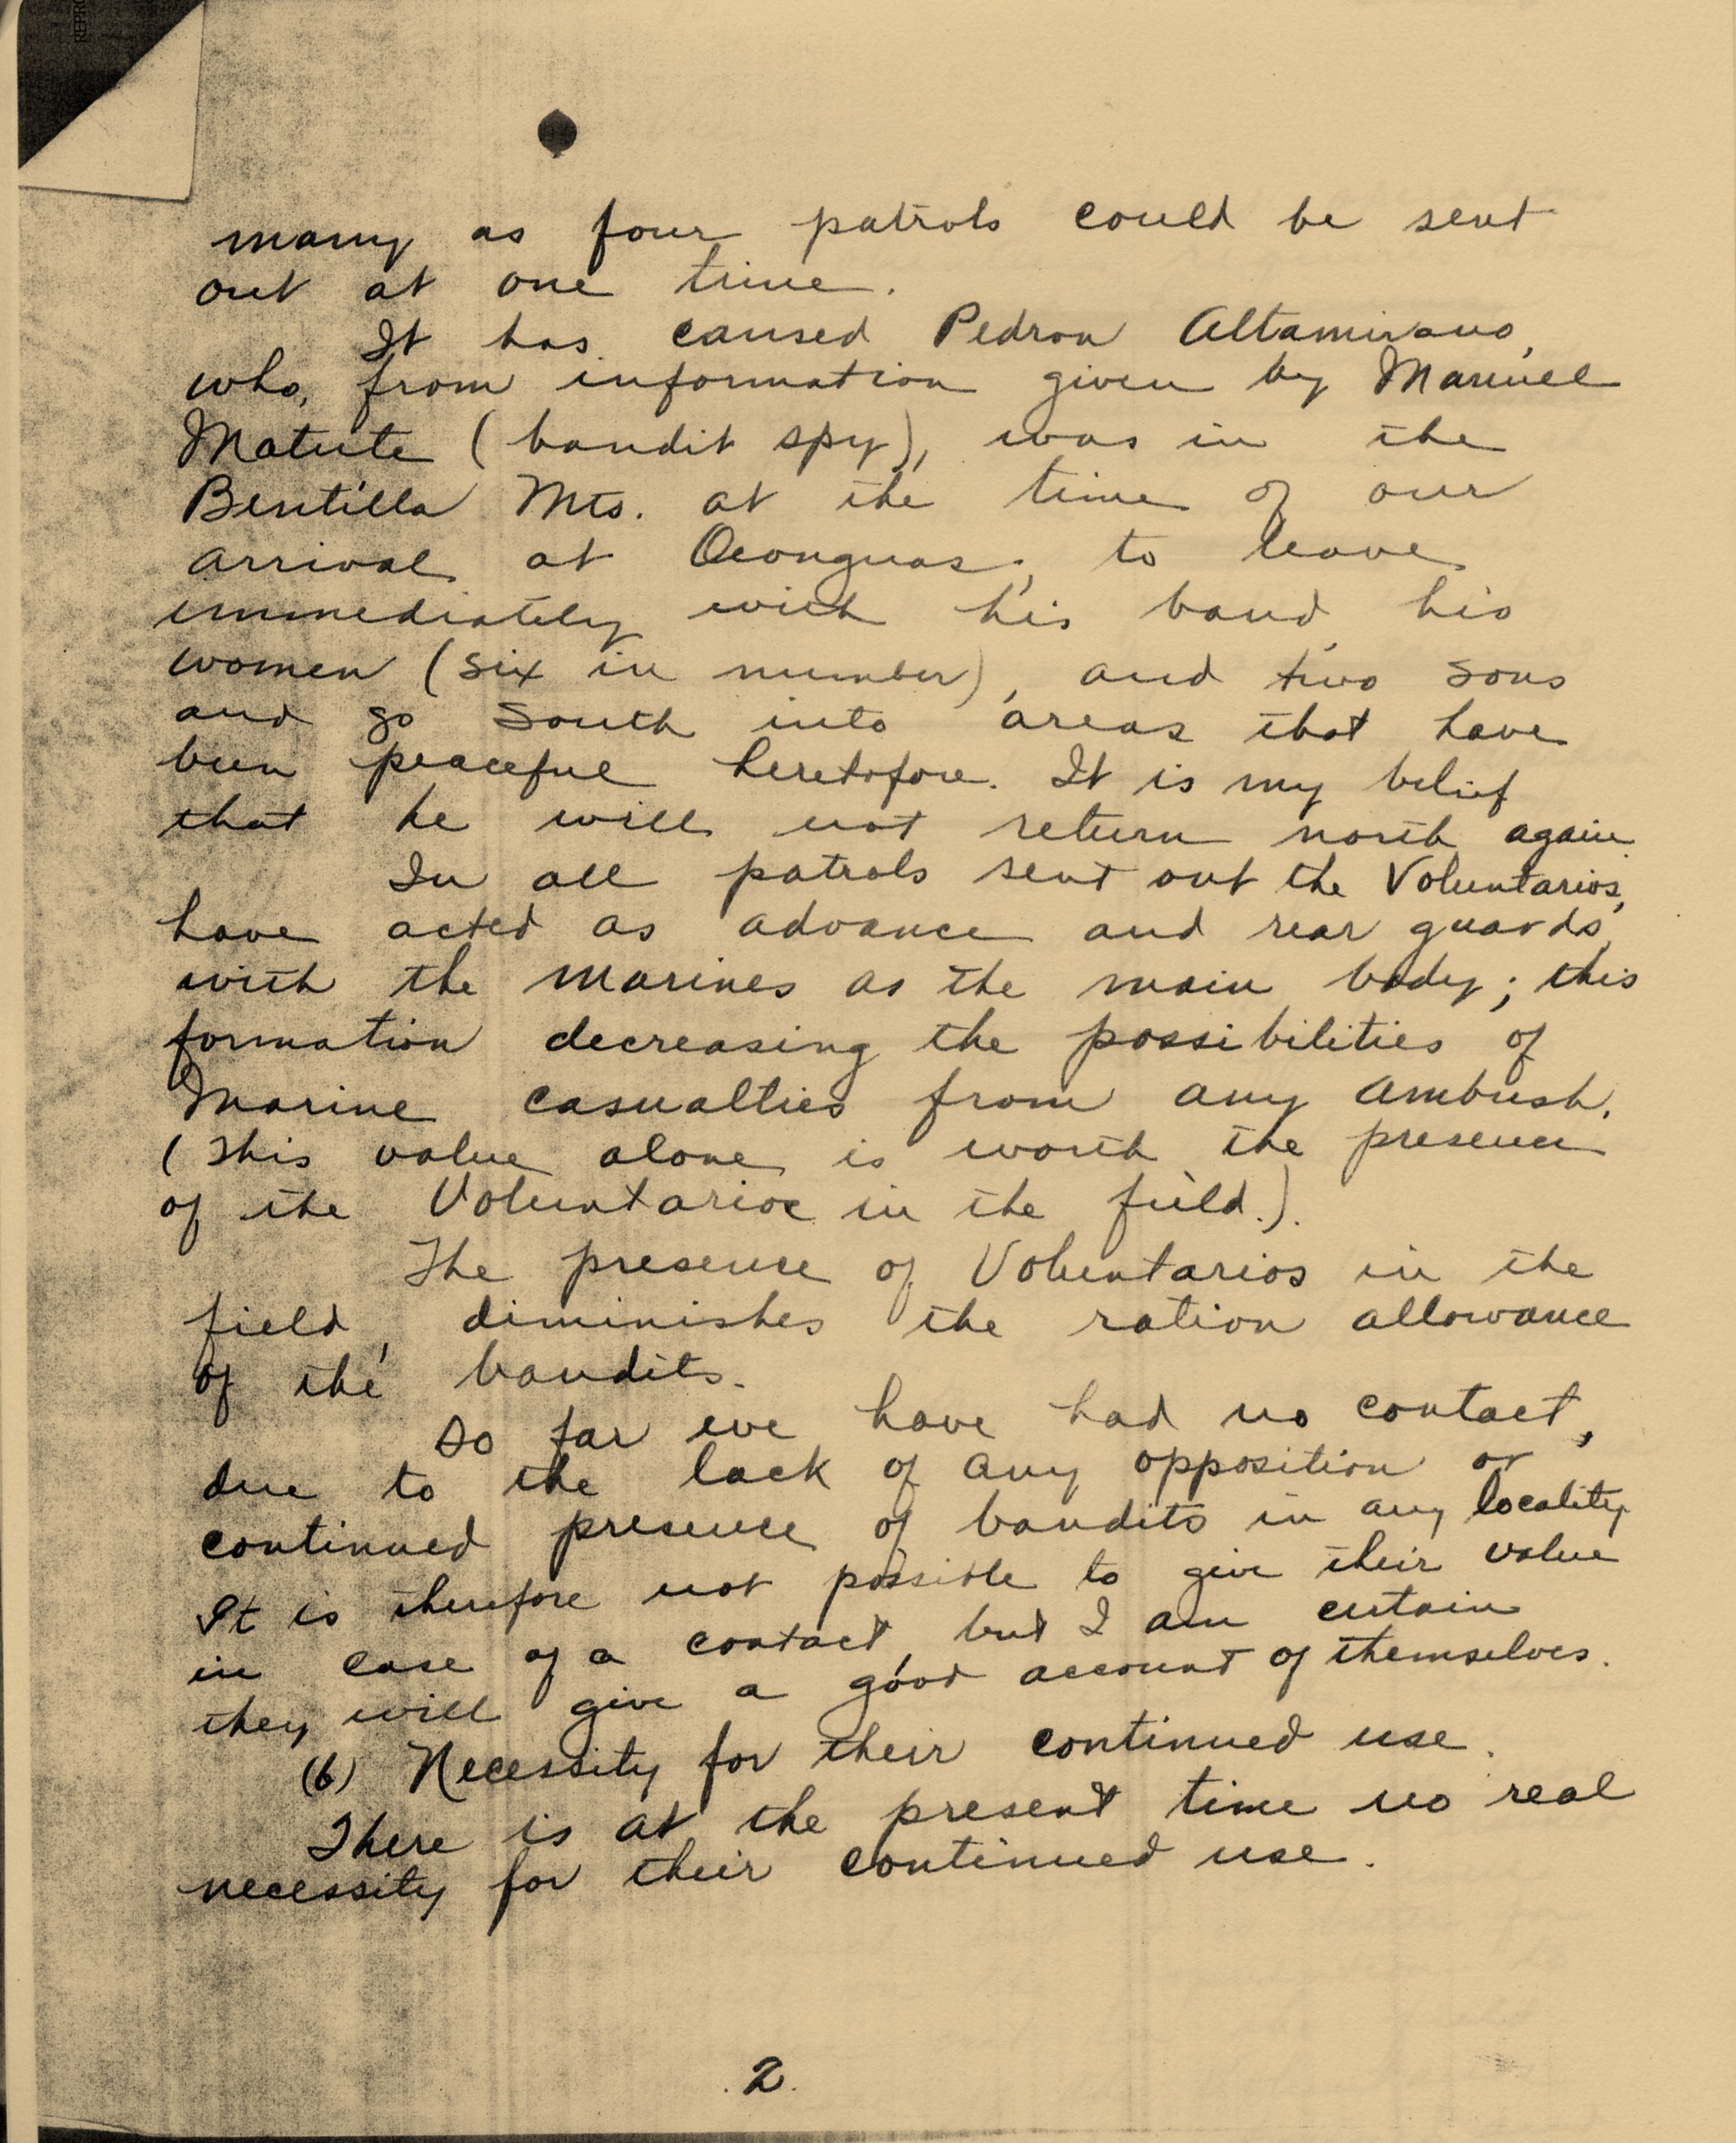 many as four patrols could be sent
out at one time.
It has caused Pedron Altamirano,
who, from information given by Manuel
Matute (bandit spy), was in the
Bentilla Mts. at the time of our
arrival at Oconguas, to leave
immediately with his band, his
women (six in number), and two sons
and go south into areas that have
been peaceful heretofore. It is my belief
that he will not return north again.
In all patrols sent out the Voluntarios,
have acted as advance and rear guards,
with the Marines as the main body; this
formation decreasing the possibilities of
Marine casualties from any ambush.
(This value alone is worth the presence
of the Voluntarios in the field.).
The presence of Voluntarios in the
field, diminishes the ration allowance
of the bandits.
So far we have had no contact,
due to the lack of any opposition or
continued presence of bandits in any locality.
It is therefore not possible to give their value
in case of a contact, but I am certain
they will give a good account of themselves.
(b) Necessity for their continued use.
There is at the present time no real
necessity for their continued use.
2.